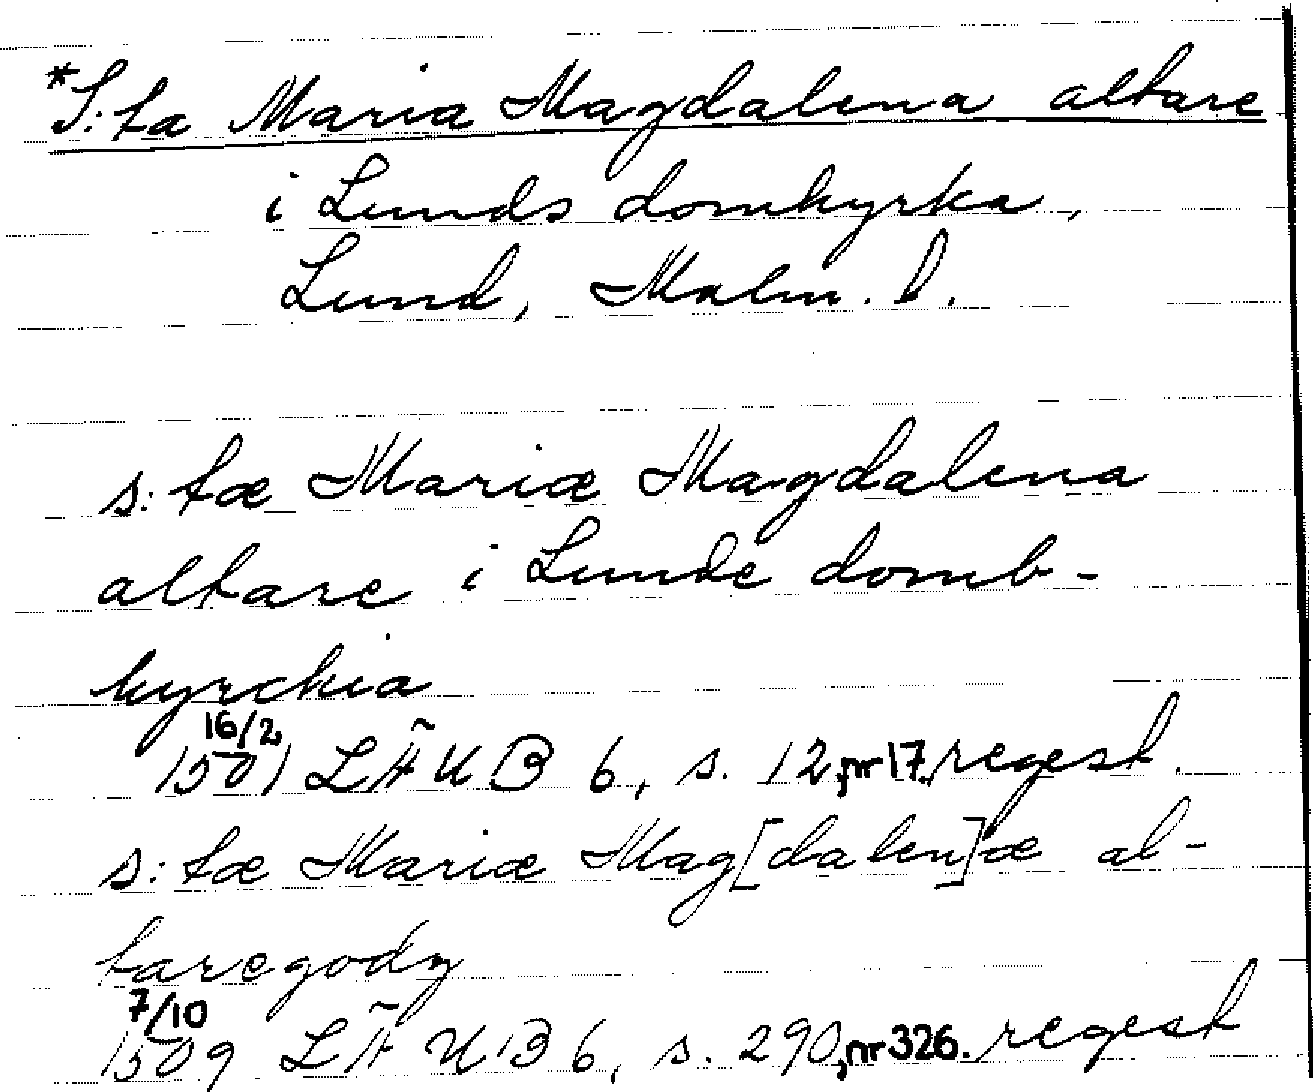 *S:ta Maria Magdalena altare
i Lunds domkyrka,
Lund, Malm. l.
s:tæ Mariæ Magdalena
altare i Lunde domb-
kyrckia
16/2
1501 LÄUB 6, s. 12, nr 17. regest.
s:tæ Mariæ Mag[dalen]æ al-
taregodz
7/10
1509 LÄUB 6, s. 290, nr 326. regest